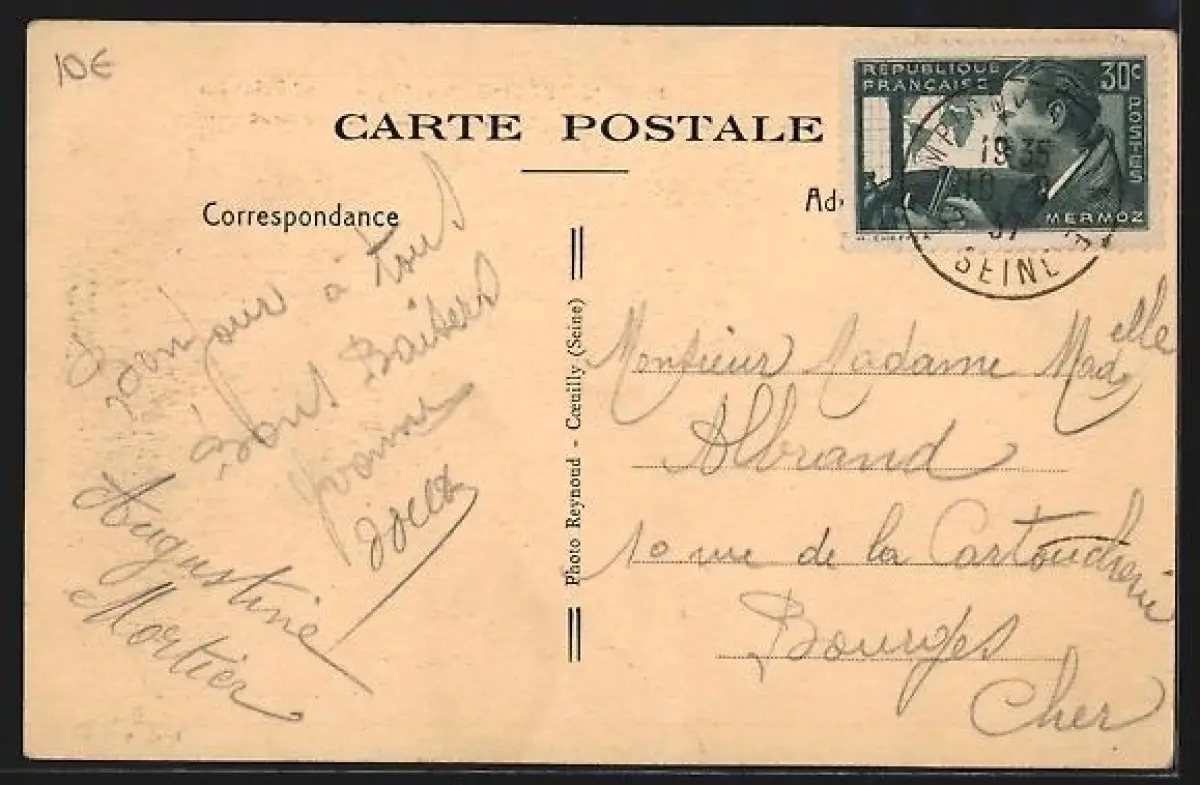 10€
CARTE POSTALE
Correspondance
Ad
RÉPUBLIQUE
FRANÇAISE
30c
POSTES
MERMOZ
19 35
10 - 8
37
SEINE
Photo Reynoud - Cœuilly (Seine)
Bonjour à tous
Bons Baisers
Yvonne
Augustine
Mortier
Monsieur Madame Madelle
Albrand
10 rue de la Cartoucherie
Bourges
Cher